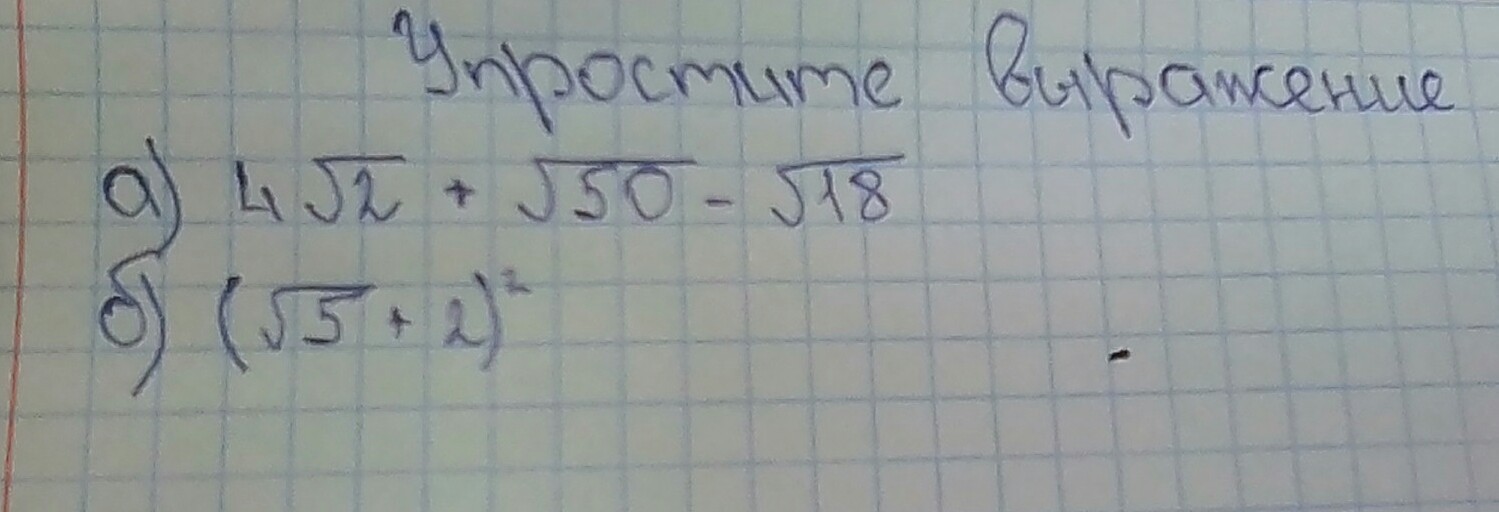 Упростите выражение
а) 4√2 + √50 - √18
б) (√5 + 2)²